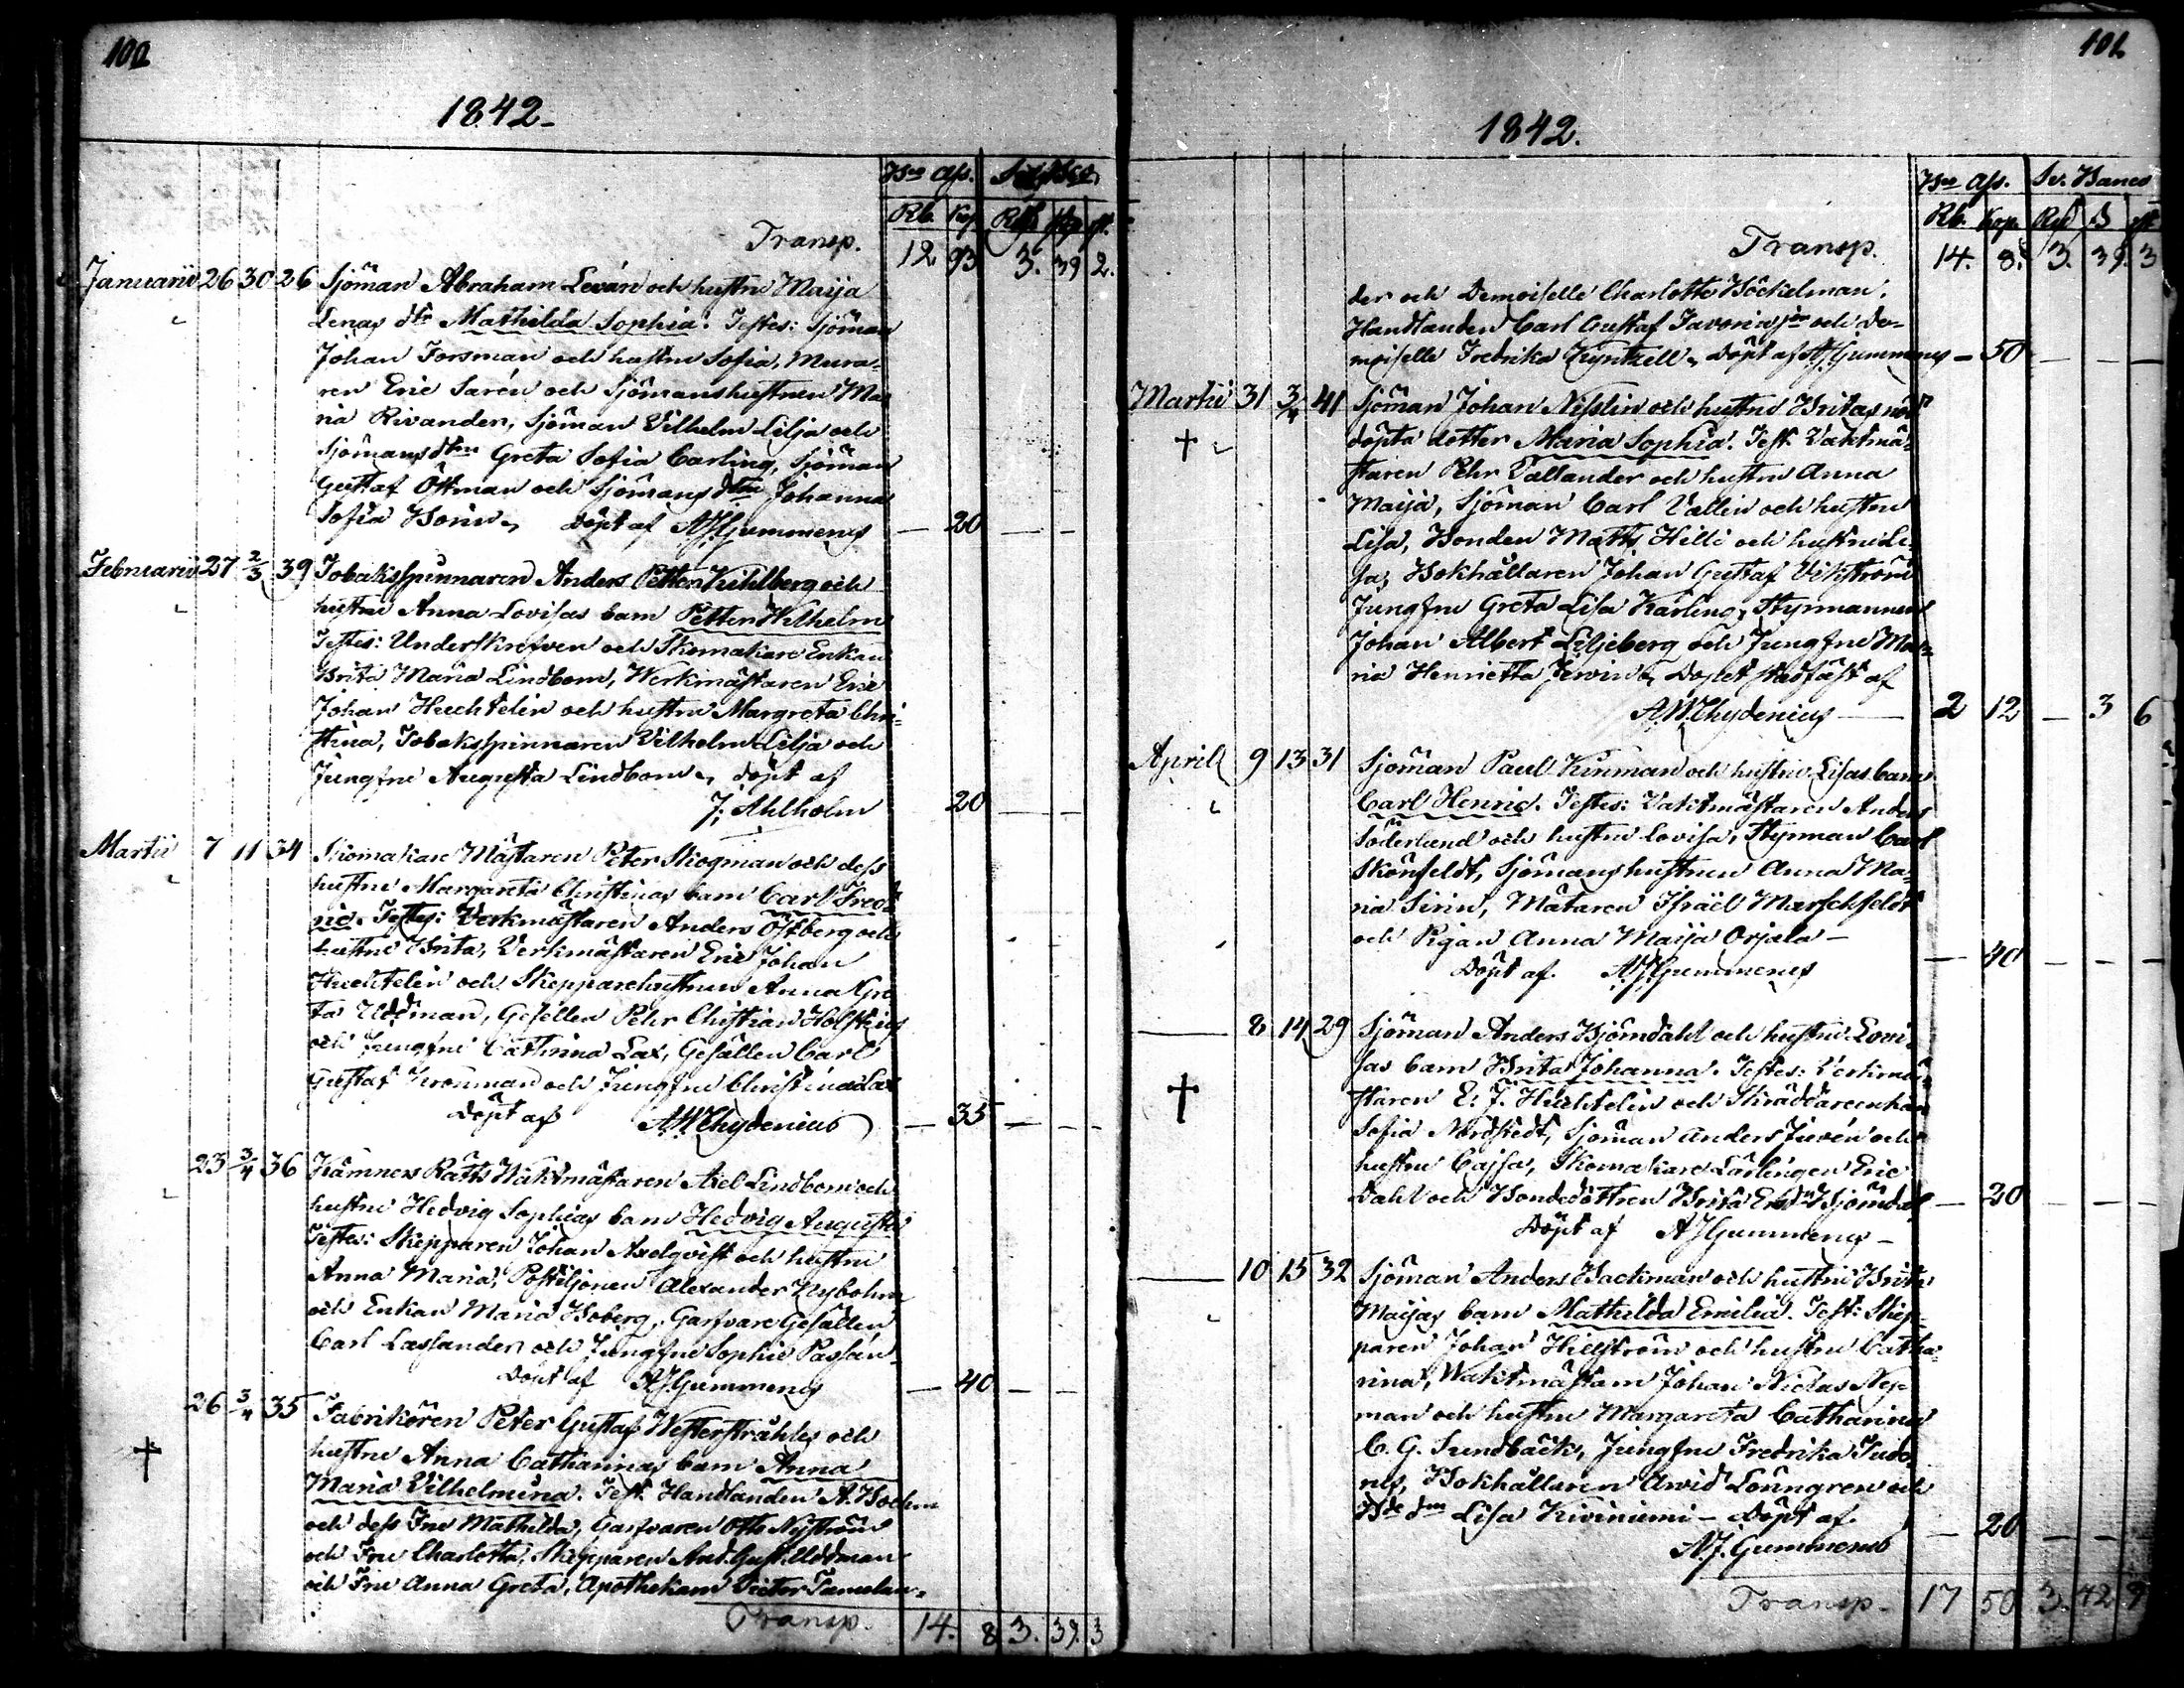 100
1842.
Bco Ass. 
Rb. Kop
Transp. 12 93 3. 39 2.
Januarii 26 30 26 Sjöman Abraham Leván och hustru Maija
Lenas dtr Mathilda Sophia. Testes: Sjöman
Johan Forsman och hustru Sofia, Mura-
ren Eric Sarén och Sjömanshustrun Ma-
ria Rivander, Sjöman Vilhelm Lilja och
Sjömans dtrn Greta Sofia Carling, Sjöman
Gustaf Öttman och Sjömans dtrn Johanna
Sofia Döpt af AJGummerus — 20 — —
Februarii 27 2/3 39 Tobaksspinnaren Anders Petter Kihlberg och
hustru Anna Lovisas barn Petter Wilhelm
Testes: Underskrefven och Skomakare Enkan
Brita Maria Lindbom, Werkmästaren Eric
Johan Huchtelin och hustru Margreta Chri-
stina, Tobaksspinnaren Vilhelm Lilja och
Jungfru Augusta Lindbom, döpt af
J: Ahlholm 20 — —
Martii 7 11 34 Skomakare Mästaren Peter Skogman och dess
hustru Margareta Christinas barn Carl Fred-
ric. Testes: Verkmästaren Anders Östberg och
hustru Brita, Verkmästaren Eric Johan
Huchtelin och Skepparehustrun Anna Gre-
ta Uddman, Gesällen Pehr Christian Holstius
och Jungfru Cathrina Lax, Gesällen Carl
Gustaf Kronman och Jungfru Christina Lax
Döpt af AWChydenius — 35 — —
23 3/4 36 Kämners Rätts Waktmästaren Axel Lindbom och
hustru Hedvig Sophias barn Hedvig Augusta
Testes: Skepparen Johan Axelqvist och hustru
Anna Maria, Postiljonen Alexander Nyholm
och Enkan Maria Boberg, Garfvare Gesällen
Carl Laslander och Jungfru Sophie Passén
Döpt af AJGummerus — 40 — —
26 3/4 35 Fabrikören Peter Gustaf Westerstråhles och
† hustru Anna Catharinas barn Anna
Maria Vilhelmina. Test. Handlanden A.
och dess Fru Mathilda, Garfvaren Otto Nyström
och Fru Charlotta, Skepparen And. Gust. Uddman
och Fru Anna Greta, Apothekaren Victor
Transp. 14. 8 3. 39. 3
101
1842.
Bco Ass. Sv. Banco
Rb. Kop. Rd ß rst
Transp. 14. 8. 3. 39. 3
der och Demoiselle Charlotte Böckelman.
Handlanden Carl Gustaf och De-
moiselle Fredrika Kyntzell, Döpt af AJGummerus — 50 — — —
Martii 31 3/4 41 Sjöman Johan Nisslin och hustru Britas nöd-
† döpta dotter Maria Sophia. Test. Vaktmä-
staren Pehr Vallander och hustru Anna
Maija, Sjöman Carl Vallin och hustru
Lisa, Bonden Matts Hilli och hustru Li-
sa, Bokhållaren Johan Gustaf Vikström
Jungfru Greta Lisa Karling, Styrmannen
Johan Albert Liljeberg och Jungfru Ma-
ria Henrietta Dopet stadfäst af
AWChydenius — 2 12 — 3 6
April 9 13 31 Sjöman Paul Kinman och hustru Lisas barn
Carl Henric. Testes: Vaktmästaren Anders
Söderlund och hustru Lovisa, Styrman Carl
Skönfeldt, Sjömans hustrun Anna Ma-
ria Sirin, Mätaren Israël Marschfeldt
och Pigan Anna Maija Orjala —
Döpt af AJGummerus — 40 — — —
— 8 14 29 Sjöman Anders Björndahl och hustru Lovi-
sas barn Brita Johanna. Testes: Verkmä-
† staren E. J. Huchtelin och Skräddareenkan
Sofia Nordstedt, Sjöman Anders Juvén och
hustru Cajsa, Skomakare Lärlingen Eric
Dahl och Bondedottren Brita Björndal — 20 — — —
Döpt af AJGummerus —
— 10 15 32 Sjöman Anders Backman och hustru Brita
Maijas barn Mathilda Emilia. Test: Skep-
paren Johan Hillström och hustru Catha-
rina, Waktmästarn Johan Niclas Ny-
man och hustru Margareta Catharina
C. G. Sundbäck, Jungfru Fredrika
Bokhållaren Arvid Löungren och
Bde dtrn Lisa Kiviniemi — Döpt af
A. J. Gummerus — 20 — — —
Transp. 17 50 3. 42 9